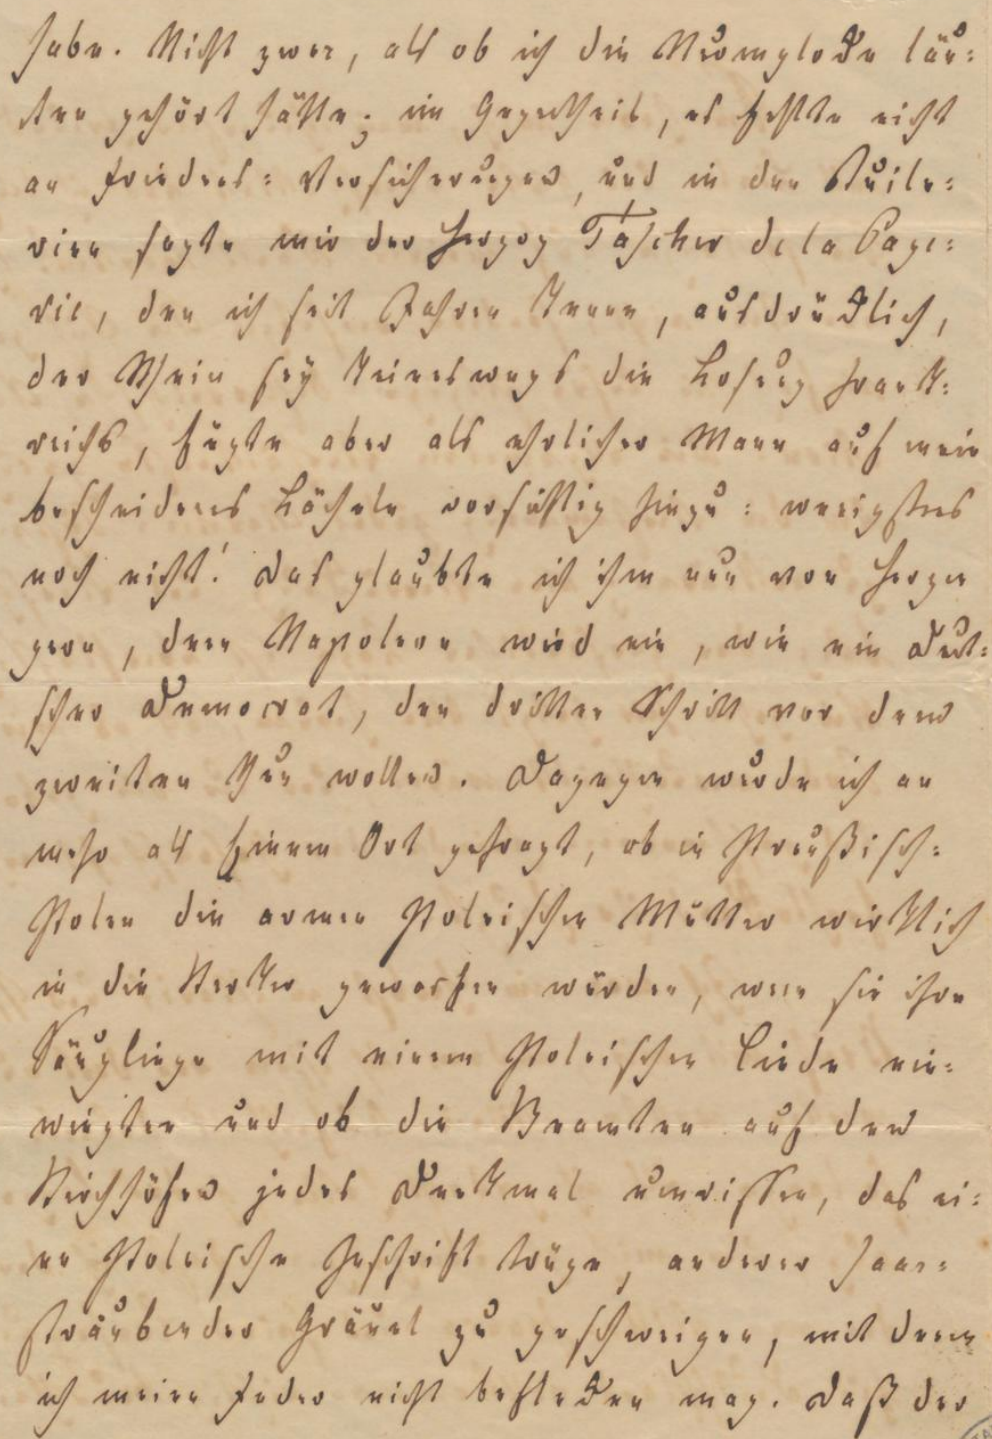 habe. Nicht zwar, als ob ich die Sturmglocke läu=
ten gehört hätte; im Gegentheil, es fehlte nicht
an Friedens=Versicherungen, und in den Tuile=
rien sagte mir der Herzog Tascher de la Page=
rie, den ich seit Jahren kenne, ausdrücklich,
der Rhein sey keineswegs die Losung Frank=
reichs, fügte aber als ehrlicher Mann auf mein
bescheidenes Lächeln vorsichtig hinzu: wenigstens
noch nicht! Das glaubte ich ihm nun von Herzen
gern, denn Napoleon wird nie, wie ein Deut=
scher Democrat, den dritten Schritt vor dem
zweiten thun wollen. Dagegen wurde ich an
mehr als Einem Ort gefragt, ob in Preußisch=
Polen die armen Polnischen Mütter wirklich
in die Kerker geworfen würden, wenn sie ihre
Säuglinge mit einem Polnischen Liede ein=
wiegten und ob die Beamten auf den
Kirchhöfen jedes Denkmal umrissen, das ei=
ne Polnische Inschrift trüge, anderer haar=
sträubender Gräuel zu geschweigen, mit denen
ich meine Feder nicht beflecken mag. Daß der